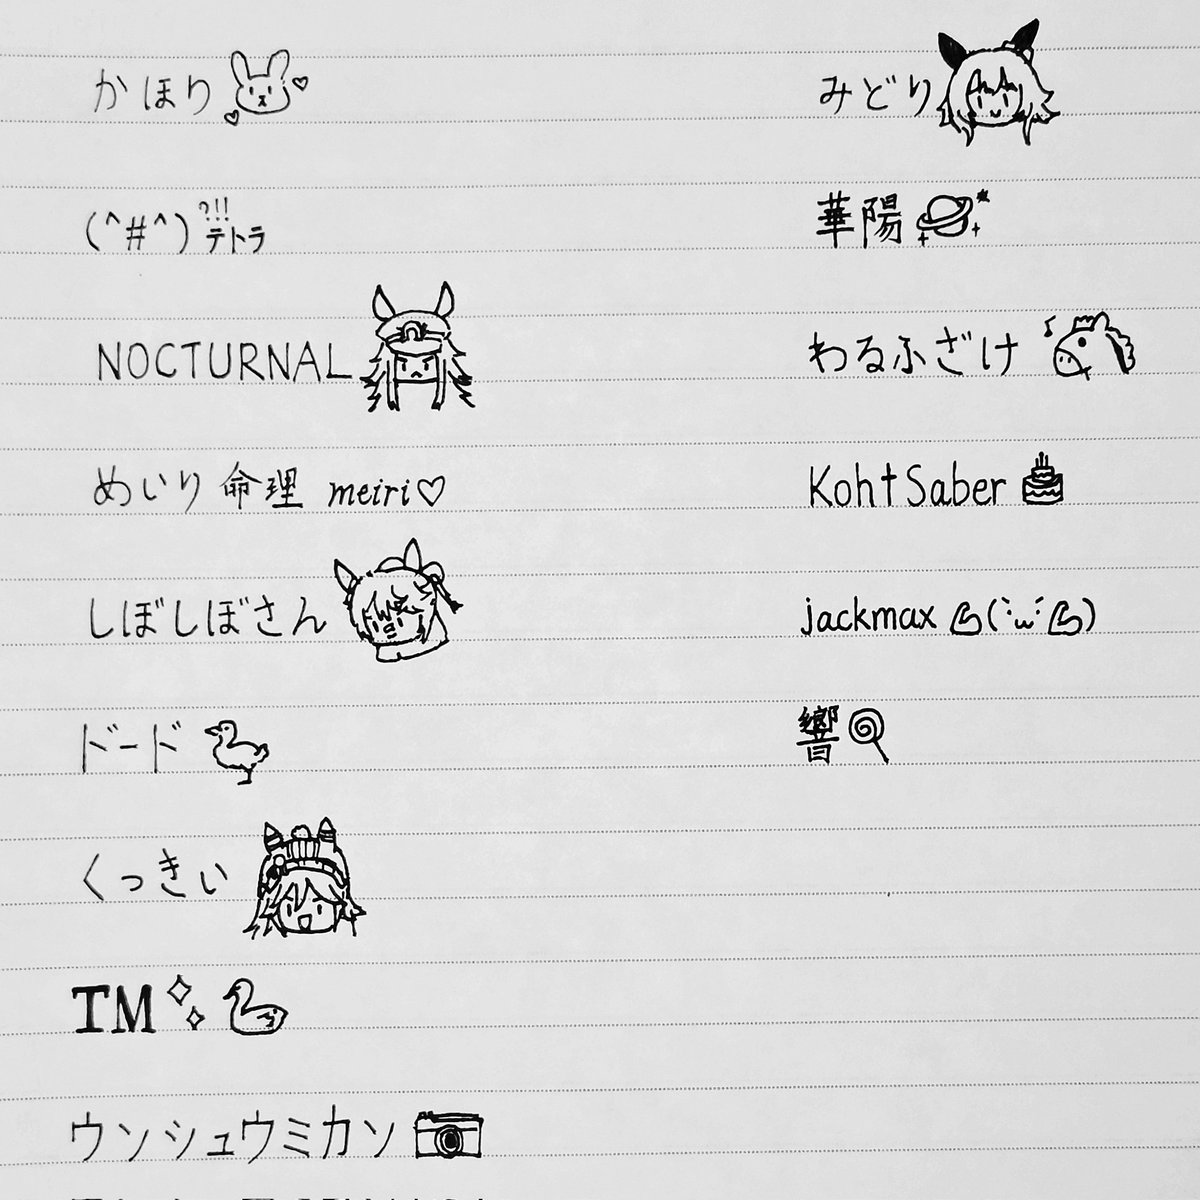 かほり
(^#^)?!!テトラ
NOCTURNAL
めいり 命理 meiri♡
しぼしぼさん
ドード
くっきぃ
TM
ウンシュウミカン
みどり
華陽
わるふざけ
Koh†Saber
jackmax 💪(`･ω･´💪)
響